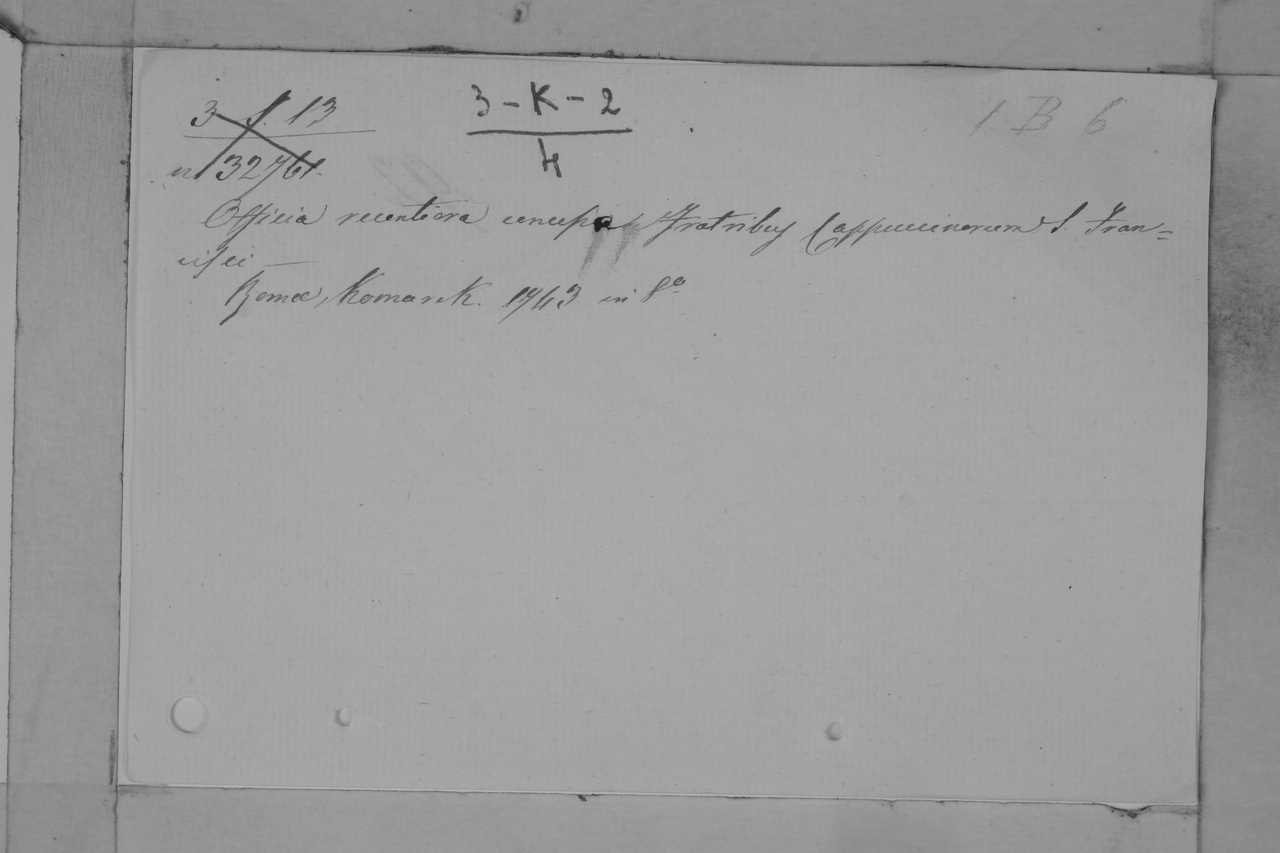 3 S. 13
3-K-2
4
1 B 6
n 32761.
Officia recentiora concessa Fratribus Cappuccinorum S. Fran=
cisci —
Romæ, Komarek. 1743 in 8º